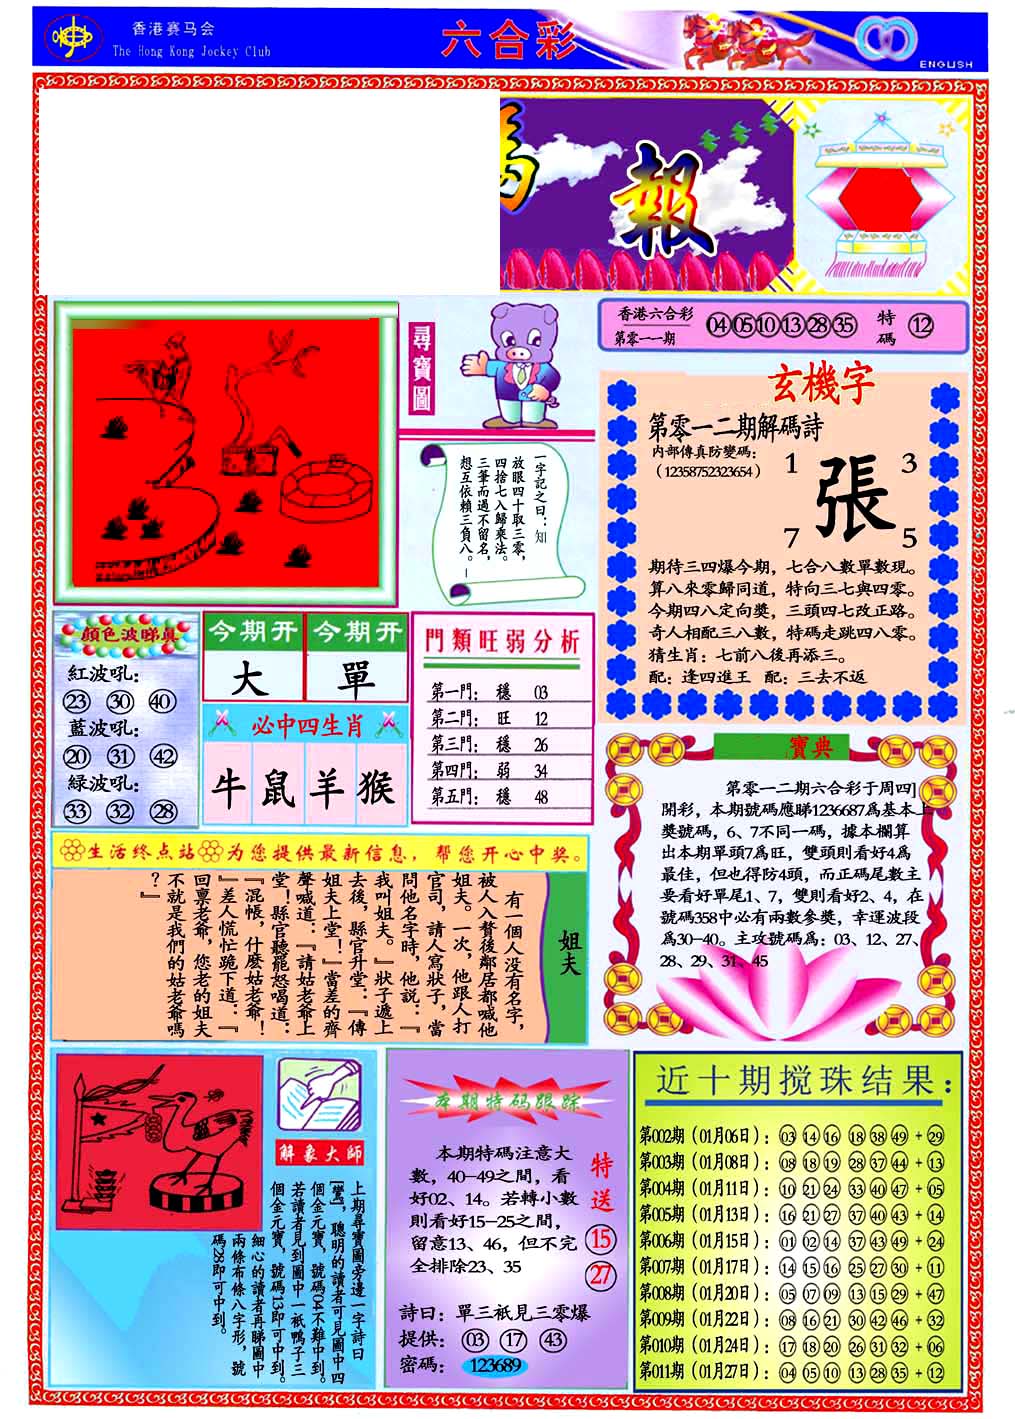 香港赛马会
The Hong Kong Jockey Club
六合彩
ENGLISH
報
尋寶圖
香港六合彩
第零一一期
04 05 10 13 28 35
特碼
12
一字記之曰：知
放眼四十取三零，
四捨七入歸乘法。
三筆而過不留名，
想互依賴三負八。
玄機字
第零一二期解碼詩
内部傳真防變碼：
（12358752323654）
1 3
張
7 5
期待三四爆今期，七合八數單數現。
算八來零歸同道，特向三七與四零。
今期四八定向獎，三頭四七改正路。
奇人相配三八數，特碼走跳四八零。
猜生肖：七前八後再添三。
配：逢四進王 配：三去不返
顔色波睇真
紅波吼：
23 30 40
藍波吼：
20 31 42
緑波吼：
33 32 28
今期开 今期开
大 單
必中四生肖
牛 鼠 羊 猴
門類旺弱分析
第一門： 穩 03
第二門： 旺 12
第三門： 穩 26
第四門： 弱 34
第五門： 穩 48
寶典
第零一二期六合彩于周四]
開彩，本期號碼應睇1236687爲基本上
獎號碼，6、7不同一碼，據本欄算
出本期單頭7爲旺，雙頭則看好4爲
最佳，但也得防4頭，而正碼尾數主
要看好單尾1、7，雙則看好2、4，在
號碼358中必有兩數參獎，幸運波段
爲30-40。主攻號碼爲：03、12、27、
28、29、31、45
生活终点站 为您提供最新信息，帮您开心中奖。
姐夫
有一個人没有名字，
被人入贅後鄰居都喊他
姐夫。一次，他跟人打
官司，請人寫狀子，當
問他名字時，他説：『
我叫姐夫。』狀子遞上
去後，縣官升堂：『傳
姐夫上堂！』當差的齊
聲喊道：『請姑老爺上
堂！縣官聽罷怒喝道：
『混帳，什麽姑老爺！
』差人慌忙跪下道：『
回禀老爺，您老的姐夫
不就是我們的姑老爺嗎
？』
解象大師
上期尋寶圖旁邊一字詩曰
[鸞]，聰明的讀者可見圖中四
個金元寶，號碼04不難中到。
若讀者見到圖中一祇鴨子三
個金元寶，號碼13即可中到。
細心的讀者再睇圖中
兩條布條八字形，號
碼28即可中到。
本期特码跟踪
本期特碼注意大
數，40-49之間，看
好02、14。若轉小數
則看好15-25之間，
留意13、46，但不完
全排除23、35
特送
15
27
詩曰：單三祇見三零爆
提供： 03 17 43
密碼： 123689
近十期搅珠结果：
第002期（01月06日）：03 14 16 18 38 49 + 29
第003期（01月08日）：08 18 19 28 37 44 + 13
第004期（01月11日）：10 21 24 33 40 47 + 05
第005期（01月13日）：16 21 27 37 40 43 + 14
第006期（01月15日）：01 02 14 37 43 49 + 24
第007期（01月17日）：14 15 16 25 27 30 + 11
第008期（01月20日）：05 07 09 13 15 29 + 47
第009期（01月22日）：08 16 21 30 42 46 + 32
第010期（01月24日）：17 18 20 26 31 32 + 06
第011期（01月27日）：04 05 10 13 28 35 + 12